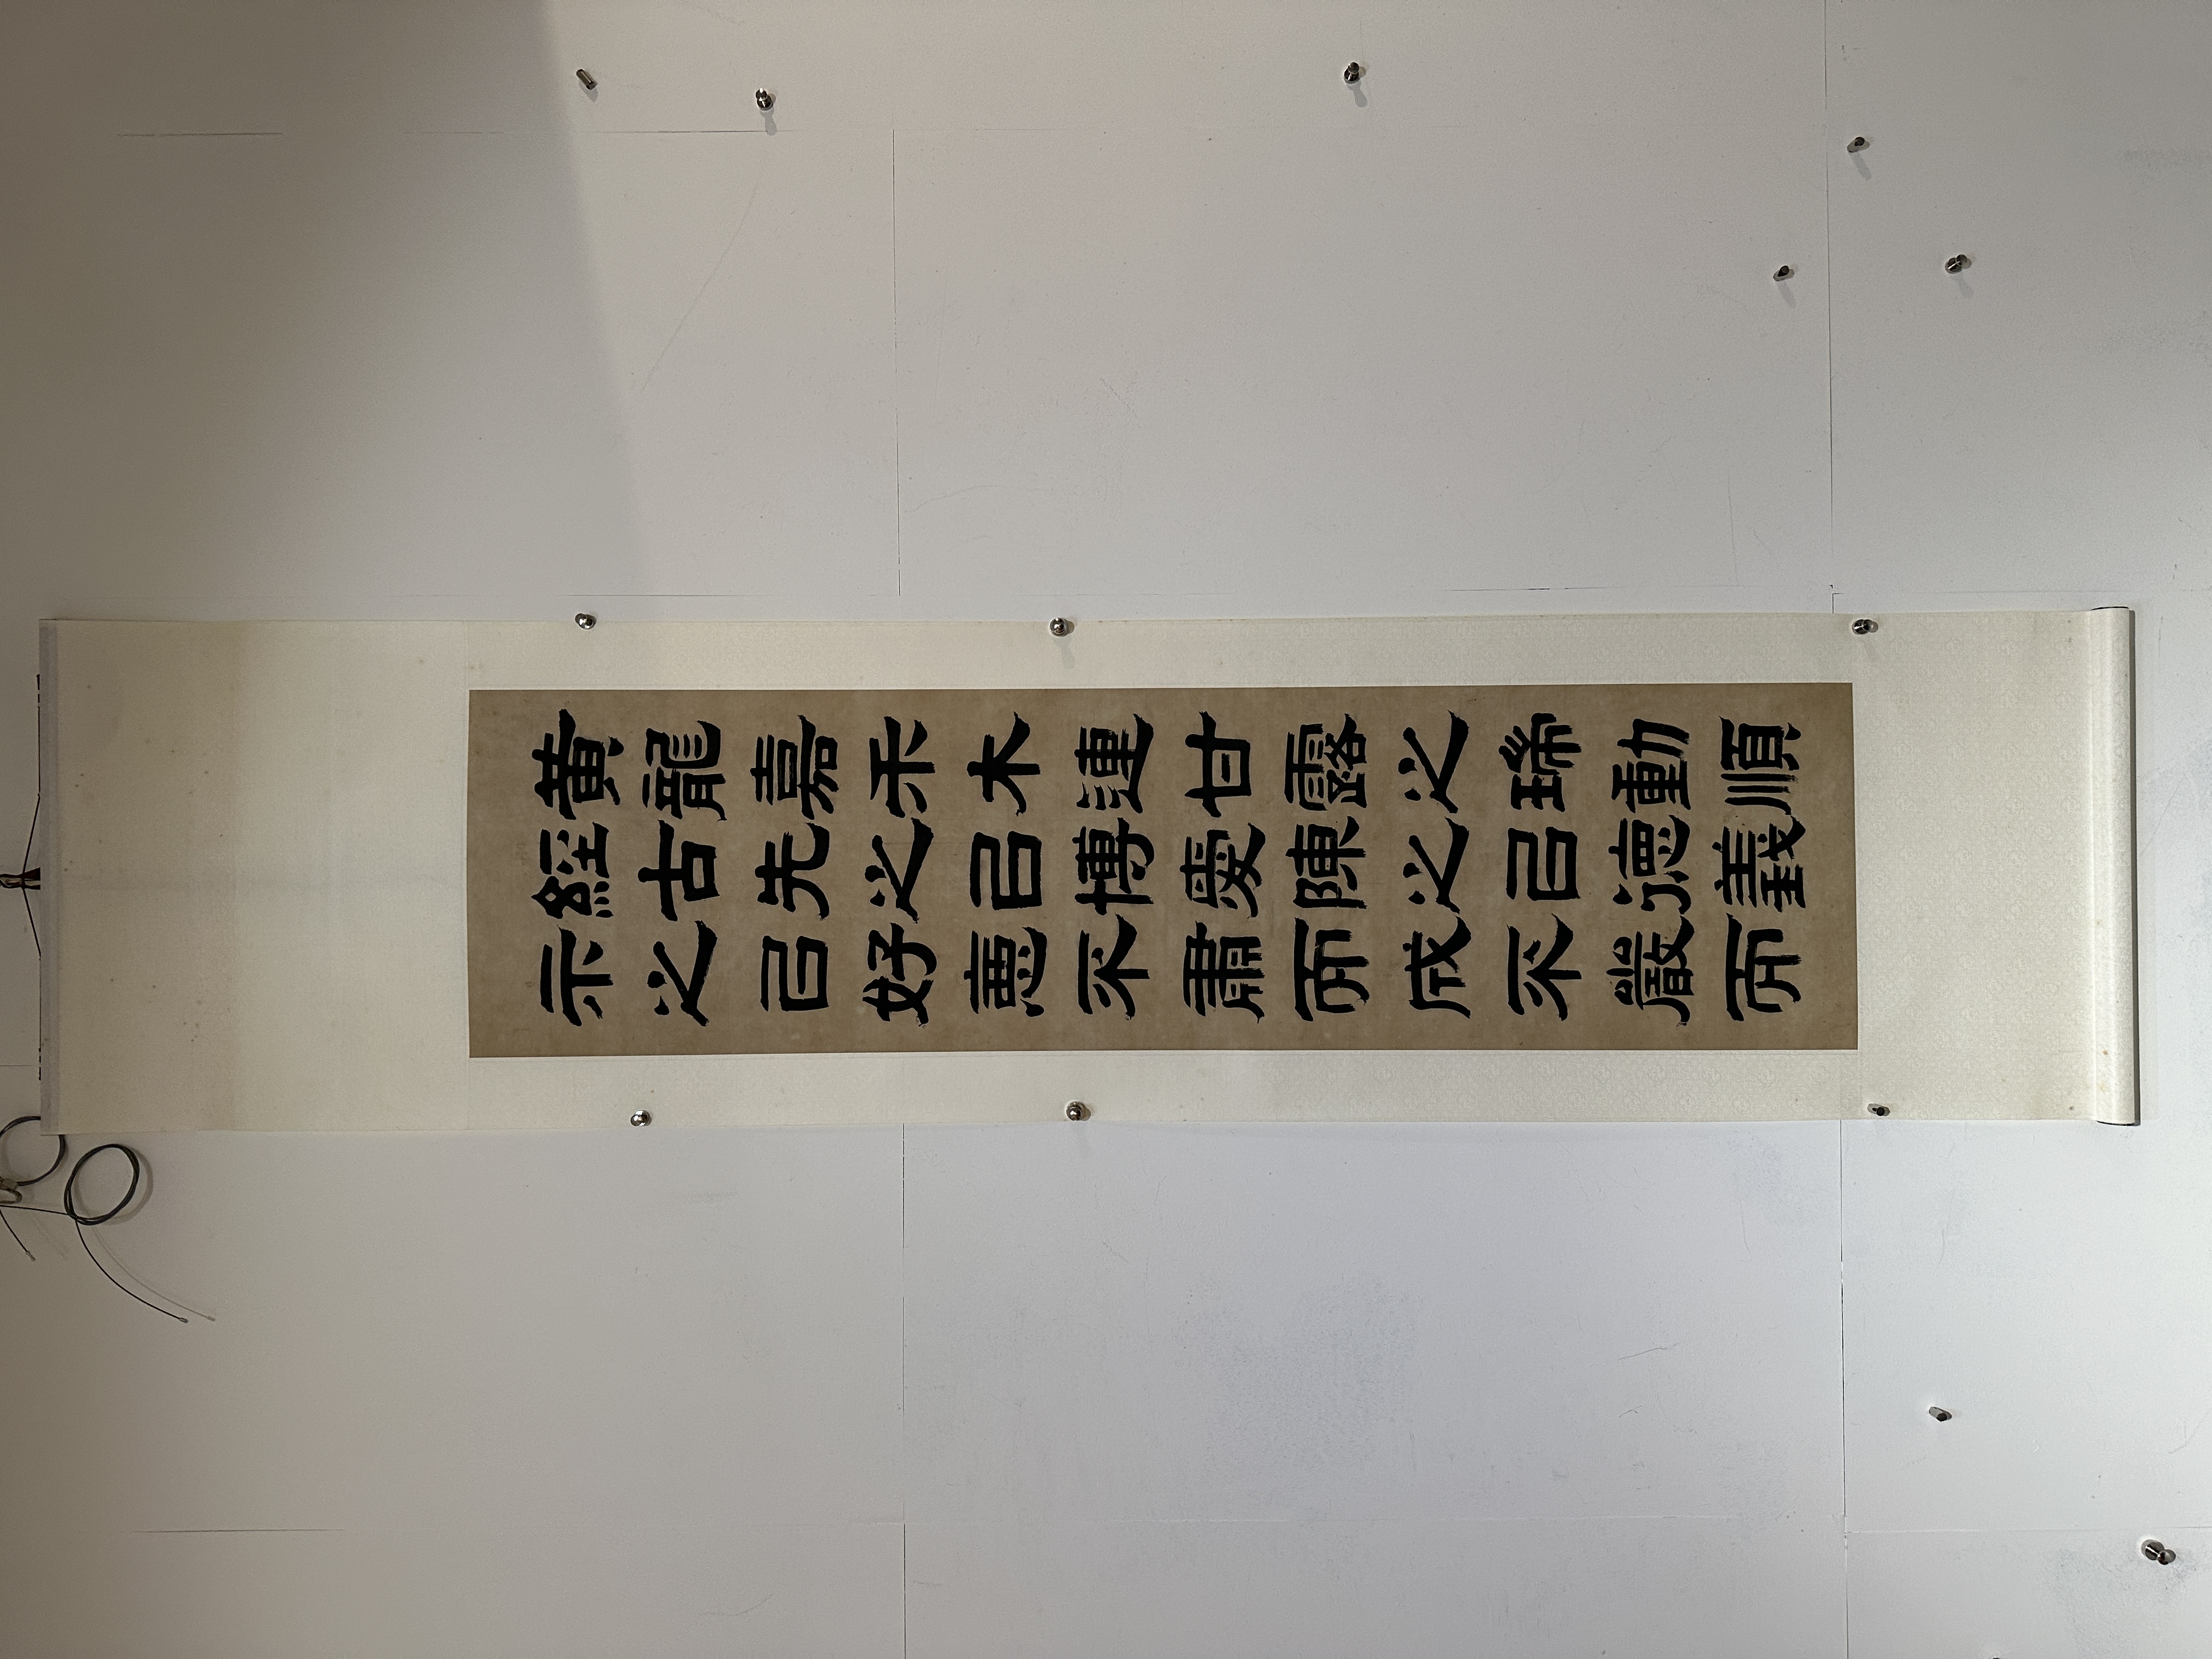 黃龍嘉禾木連甘露之瑞動順
經古先之㠯博愛陳之㠯德義
示之㠯好惡不肅而成不嚴而